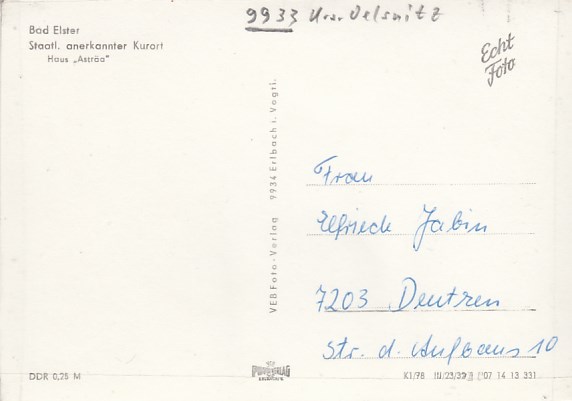 9933 Krs. Oelsnitz
Bad Elster
Staatl. anerkannter Kurort
Haus „Asträa"
Echt
Foto
VEB Foto-Verlag 9934 Erlbach i. Vogtl.
Frau
Elfriede Jabin
7203 Deutzen
Str. d. Aufbaus 10
DDR 0,25 M
K1/78 III/23/32 07 14 13 331